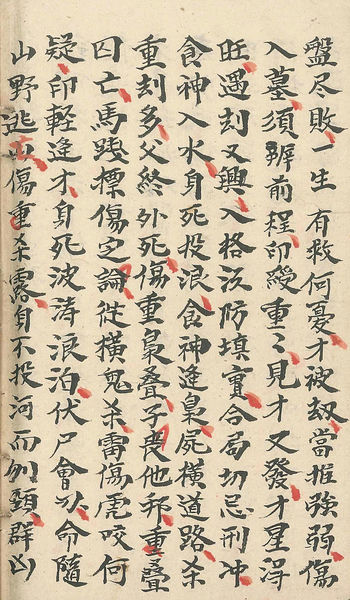 盤尽敗一生有救何憂才被劫當推強弱傷
入墓須辨前程印綬重〻見才又發才星淂
旺遇刻又興入格江防填寳合局切忌刑冲
食神入水身死投浪食神逢梟屍橫道路杀
重刻多父終外死傷重梟叠子喪他邦重叠
囚亡馬踐標傷定論從橫鬼杀雷傷虎咬何
疑印軽逢才身死波涛浪泊伏尸會以命隨
山野逃傷重杀露身不投河而刎頸群凶